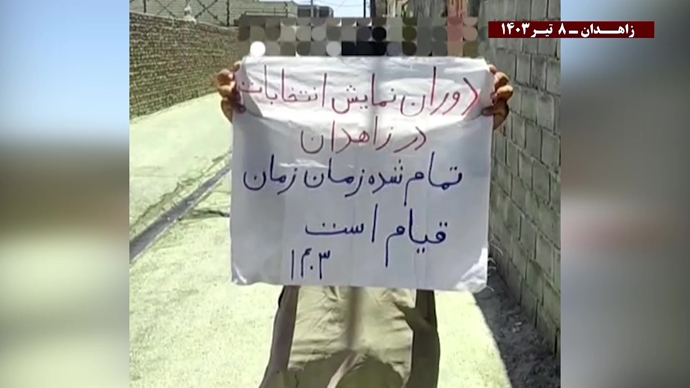 زاهـدان ـ ۸ تیـر ۱۴۰۳
دوران نمایش انتخابات
در زاهدان
تمام شده زمان زمان
قیام است
۱۴۰۳